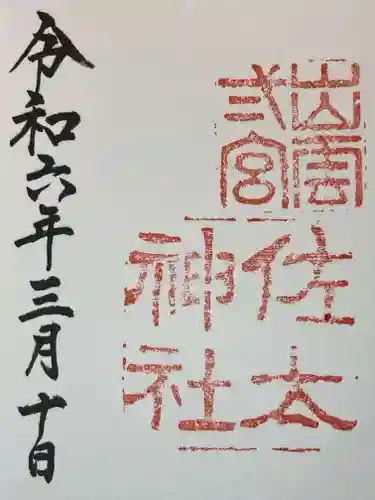 出雲
弐宮
佐太
神社
令和六年三月十日